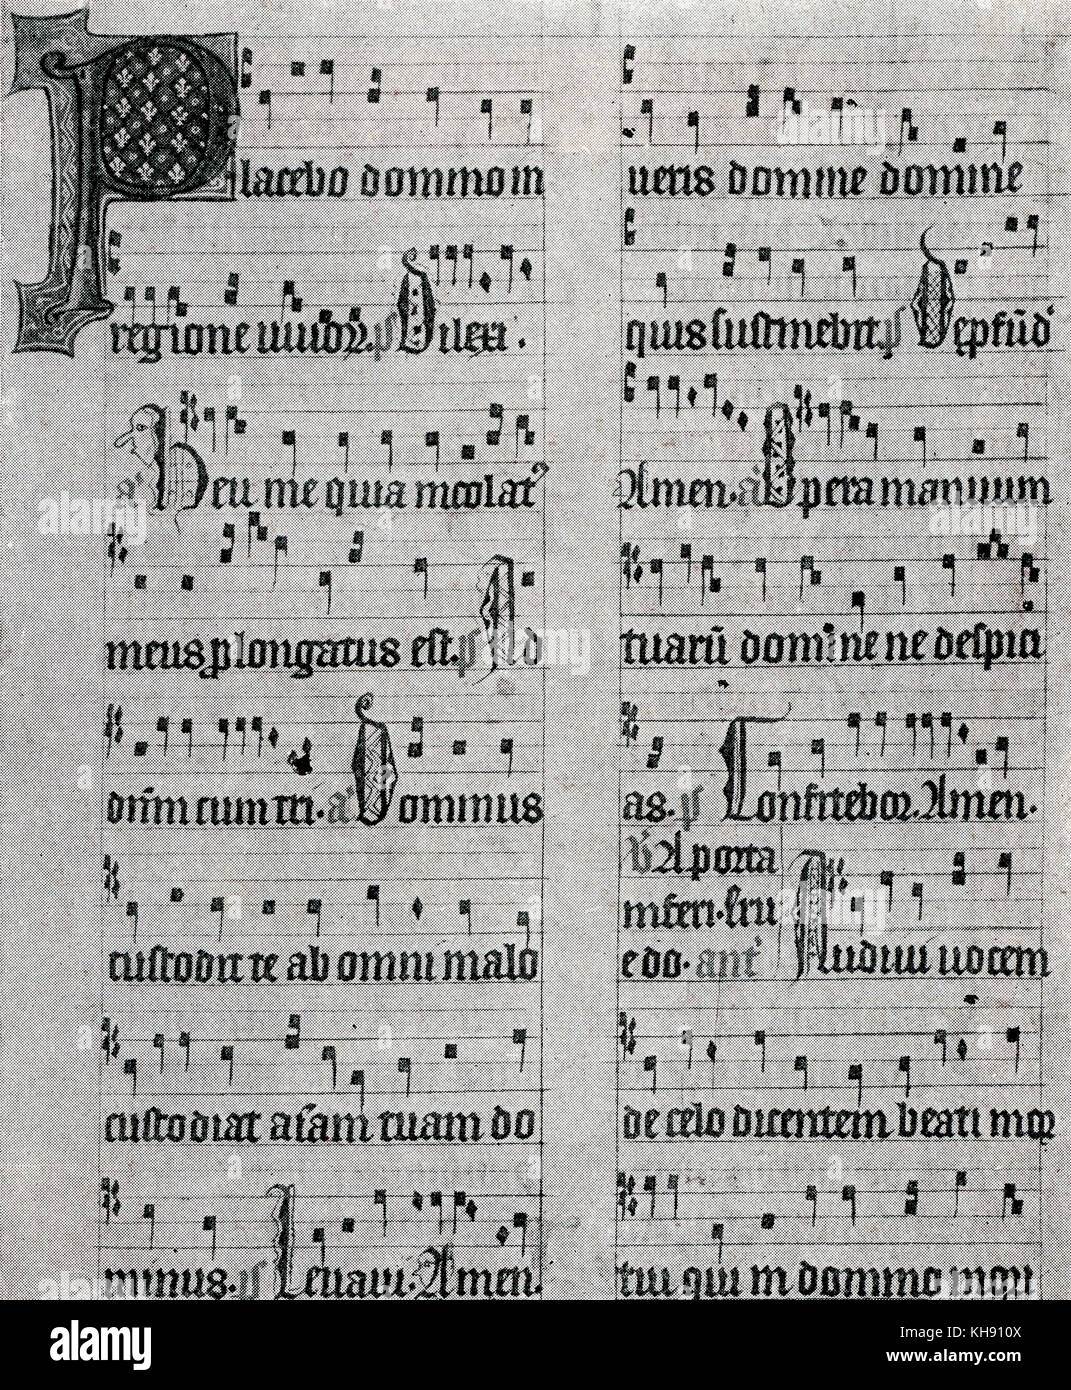 Placebo domino in
regione uiuoꝝ. ps Dilexi.
a Heu me quia incolat᷒
meus ꝓlongatus est. ps Ad
dn̄m cum tri. a Dominus
custodit te ab omni malo
custodiat aīam tuam do
minus. ps Leuaui. Amen.
ueris domine domine
quis sustinebit. ps De ꝓfūd᷒
Amen. a Opera manuum
tuarū domine ne despici
as. ps Confitebor. Amen.
V̉ A porta
inferi. Eru
e do. ant᷒ Audiui uocem
de celo dicentem beati moꝝ
tui qui in domino moꝛi
alamy
KH910X
www.alamy.com